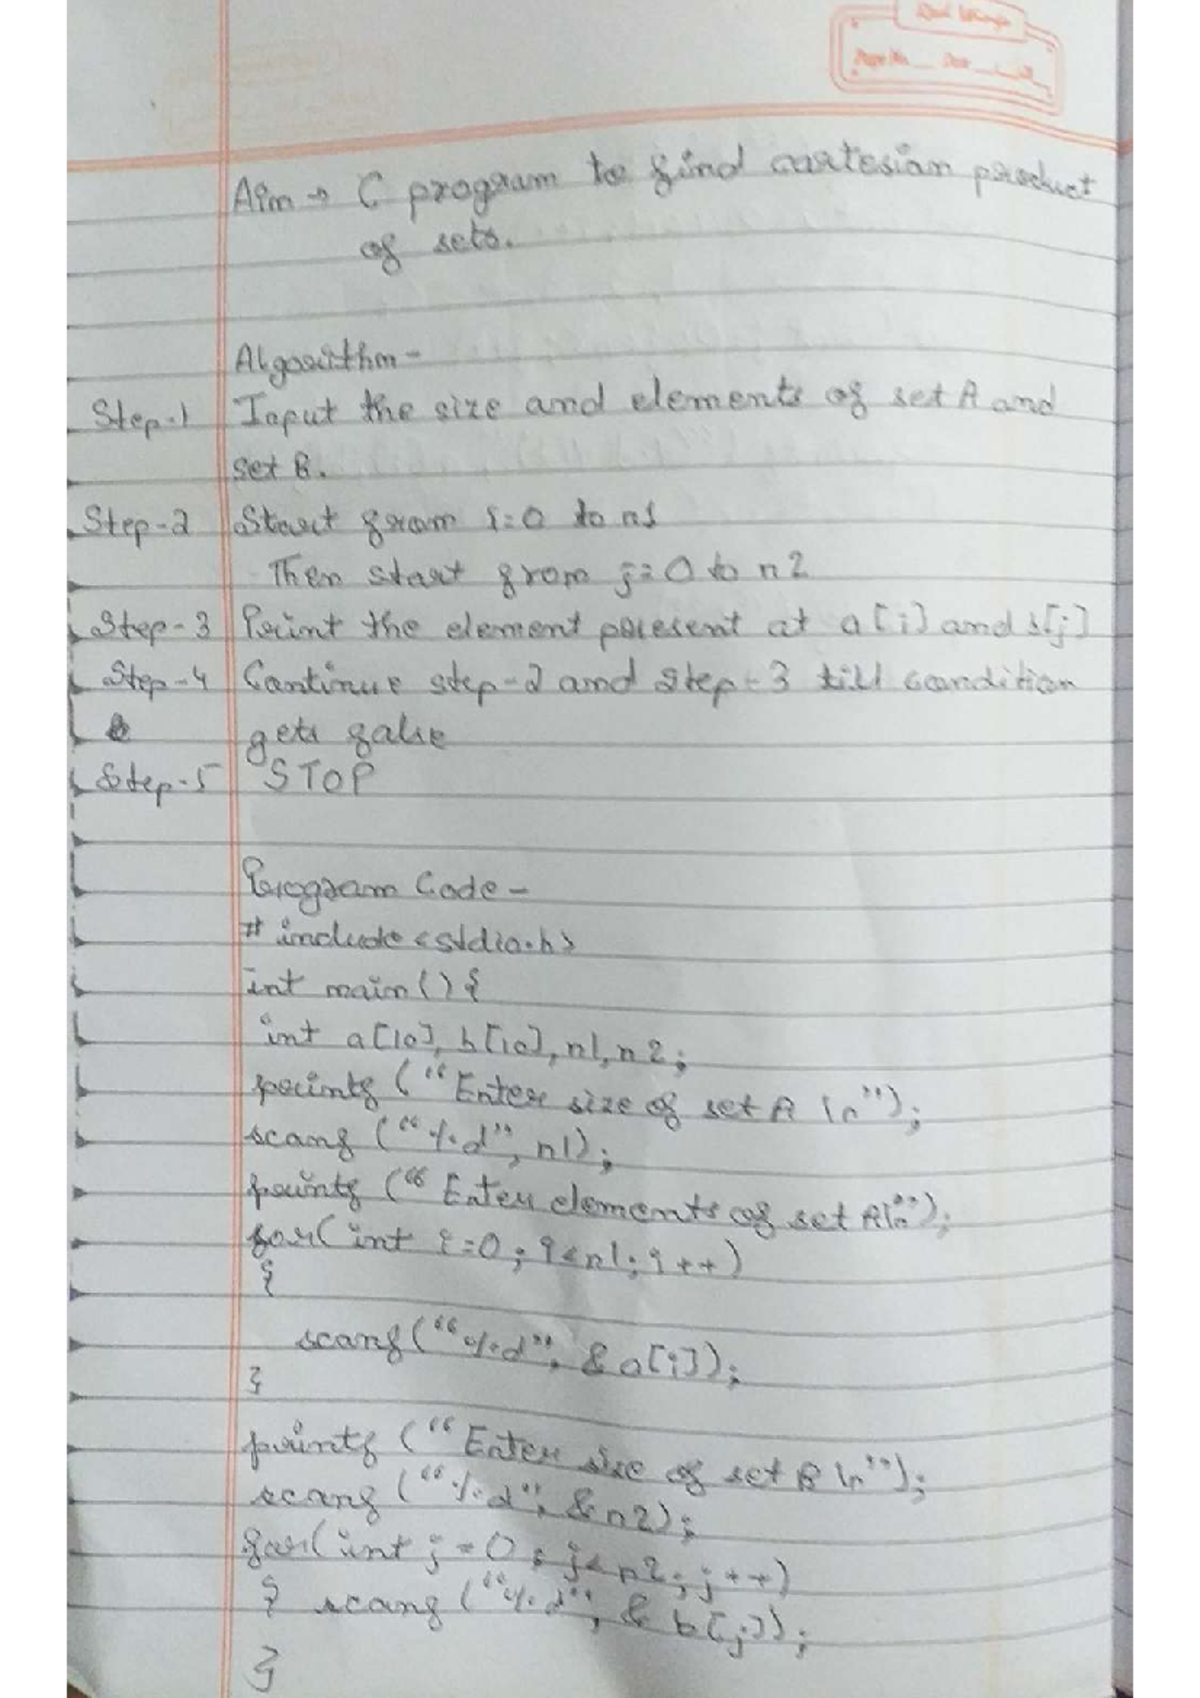 Page No. Date
Aim → C program to find cartesian product
of sets.
Algorithm -
Step-1 Input the size and elements of set A and
set B.
Step-2 Start from i=0 to n1
Then start from j=0 to n2
Step-3 Print the element present at a[i] and b[j]
Step-4 Continue step-2 and step-3 till condition
gets false
Step-5 STOP
Program Code -
# include <stdio.h>
int main() {
int a[10], b[10], n1, n2;
printf ("Enter size of set A \n");
scanf ("%d", n1);
printf ("Enter elements of set A\n");
for(int i=0; i<n1; i++)
{
scanf("%d", &a[i]);
}
printf ("Enter size of set B \n");
scanf ("%d", &n2);
for(int j=0; j<n2; j++)
{ scanf ("%d", & b[j]);
}